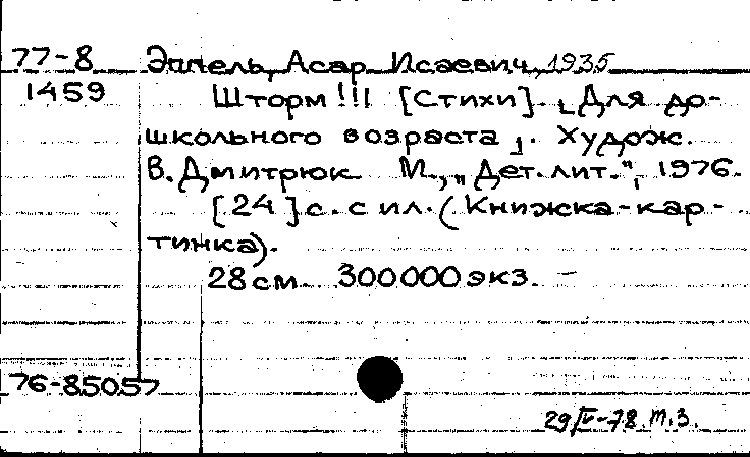 77-8 Эппель, Асар Исаевич, 1935
1459 Шторм!!! [Стихи]. [Для до-
школьного возраста]. Худож.
В. Дмитрюк. М., "Дет. лит.", 1976.
[24] с. с ил. (Книжка-кар-
тинка).
28 см. 300000 экз. —
76-85057
29/IV-78. т.з.